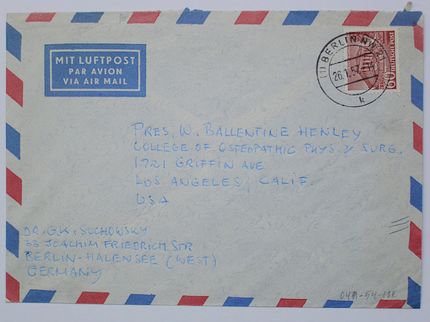 MIT LUFTPOST
PAR AVION
VIA AIR MAIL
BERLIN
26.1.57
60
PRES. W. BALLENTINE HENLEY
COLLEGE OF OSTEOPATHIC PHYS. & SURG.
1721 GRIFFIN AVE
LOS ANGELES, CALIF.
USA
DR. G.K. SUCHOWSKY
JOACHIM FRIEDRICH STR
BERLIN-HALENSEE (WEST)
GERMANY